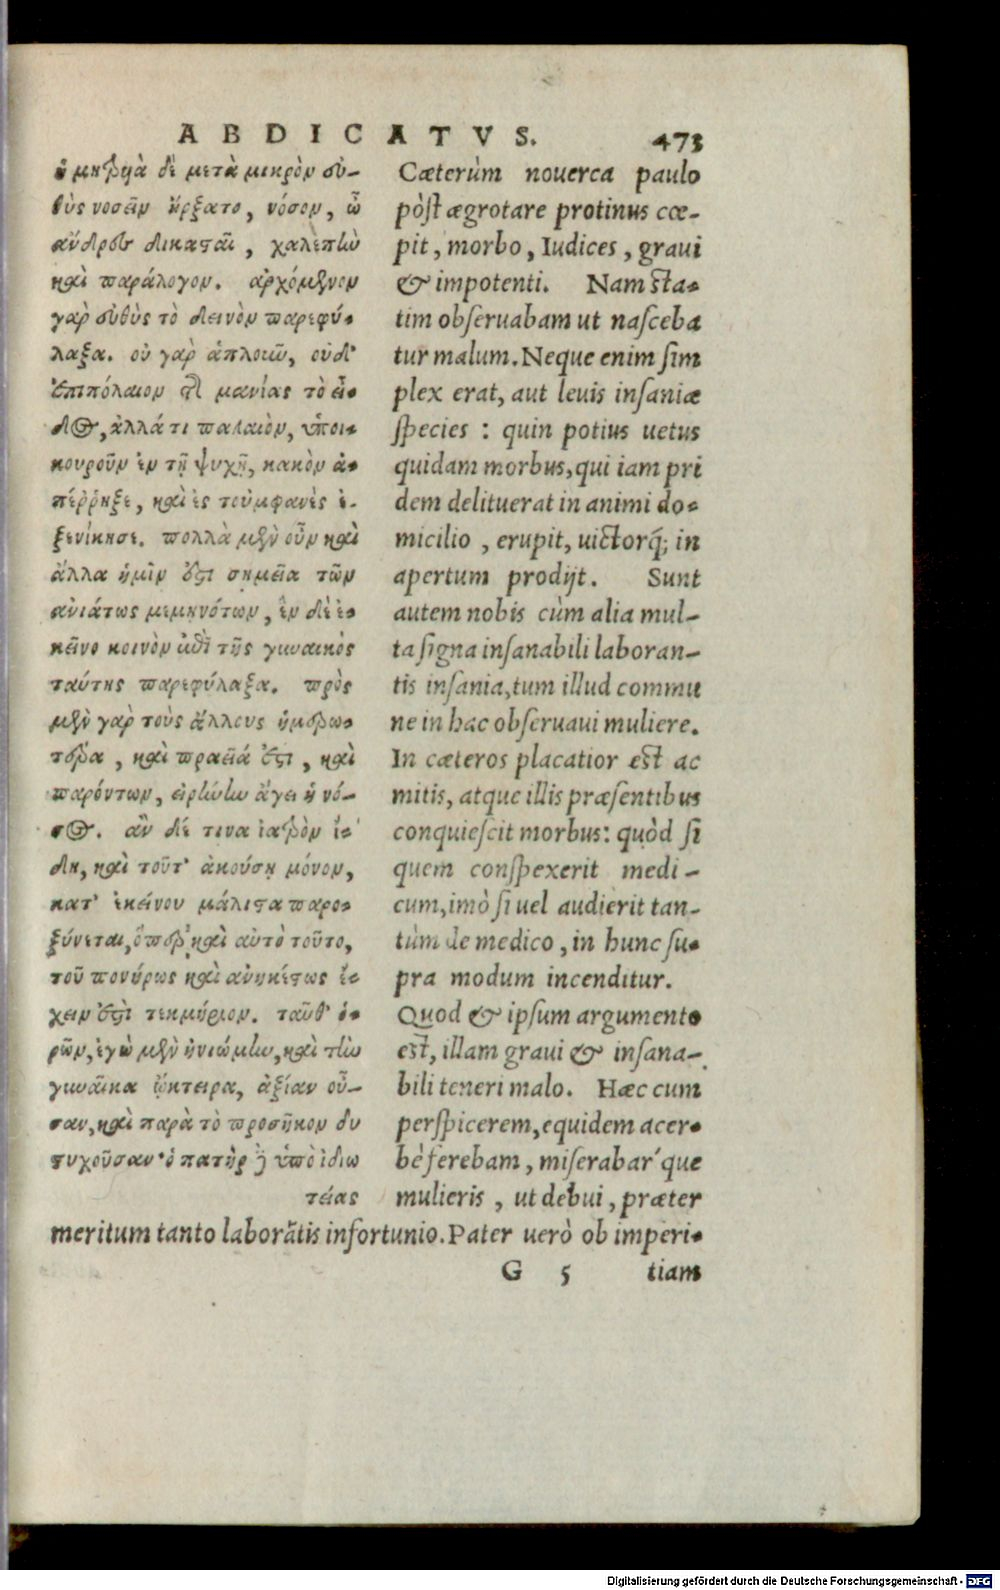 ABDICATVS. 473
ἡ μητρυιὰ δὲ μετὰ μικρὸν εὐ-
θὺς νοσεῖν ἤρξατο, νόσον, ὦ
ἄνδρες δικασταὶ, χαλεπὴν
καὶ παράλογον. ἀρχόμενον
γὰρ εὐθὺς τὸ δεινὸν παρεφύ-
λαξα. οὐ γὰρ ἁπλοῦν, οὐδ'
ἐπιπόλαιον τῆς μανίας τὸ εἶ-
δος, ἀλλά τι παλαιὸν, ὑποι-
κουροῦν ἐν τῇ ψυχῇ, κακὸν ἀ-
πέῤῥηξε, καὶ ἐς τοὐμφανὲς ἐ-
ξενίκησε. πολλὰ μὲν οὖν καὶ
ἄλλα ἡμῖν ἔστι σημεῖα τῶν
ἀνιάτως μεμηνότων, ἓν δὲ ἐ-
κεῖνο κοινὸν ἐπὶ τῆς γυναικὸς
ταύτης παρεφύλαξα. πρὸς
μὲν γὰρ τοὺς ἄλλους ἡμερω-
τέρα, καὶ πραεῖά ἐστι, καὶ
παρόντων, εἰρήνην ἄγει ἡ νό-
σος. ἂν δέ τινα ἰατρὸν ἴ-
δῃ, καὶ τοῦτ' ἀκούσῃ μόνον,
κατ' ἐκείνου μάλιστα παρο-
ξύνεται, ὅπερ καὶ αὐτὸ τοῦτο,
τοῦ πονήρως καὶ ἀνηκέστως ἔ-
χειν ἐστὶ τεκμήριον. ταῦθ' ὁ-
ρῶν, ἐγὼ μὲν ἠνιώμην, καὶ τὴν
γυναῖκα ᾤκτειρα, ἀξίαν οὖ-
σαν, καὶ παρὰ τὸ προσῆκον δυ
στυχοῦσαν· ὁ πατὴρ δὲ ὑπὸ ἰδιω
τείας
Cæterùm nouerca paulo
pòst ægrotare protinus cœ-
pit, morbo, Iudices, graui
& impotenti. Nam sta-
tim obseruabam ut nasceba
tur malum. Neque enim sim
plex erat, aut leuis insaniæ
species: quin potius uetus
quidam morbus, qui iam pri
dem delituerat in animi do-
micilio, erupit, uictorq́; in
apertum prodijt. Sunt
autem nobis cùm alia mul-
ta signa insanabili laboran-
tis insania, tum illud commu
ne in hac obseruaui muliere.
In cæteros placatior est ac
mitis, atque illis præsentibus
conquiescit morbus: quòd si
quem conspexerit medi-
cum, imò si uel audierit tan-
tùm de medico, in hunc su-
pra modum incenditur.
Quod & ipsum argumento
est, illam graui & insana-
bili teneri malo. Hæc cum
perspicerem, equidem acer-
bè ferebam, miserabar'que
mulieris, ut debui, præter
meritum tanto laborātis infortunio. Pater uerò ob imperi-
G 5 tiam
Digitalisierung gefördert durch die Deutsche Forschungsgemeinschaft - DFG